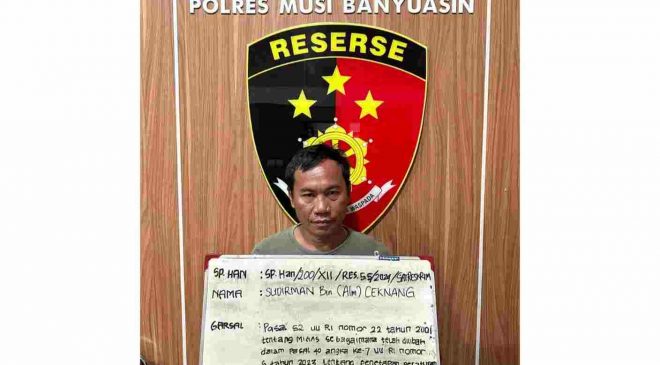 POLRES MUSI BANYUASIN
RESERSE
WASPADA
SP. HAN : SP. Han/200/XII/RES.5.5/2024/SATRESKRIM
NAMA : SUDIRMAN Bin (Alm) CEKNANG
GARSAL : Pasal 52 UU RI nomor 22 tahun 2001
tentang MIGAS sebagaimana telah diubah
dalam PASAL 40 angka ke-7 UU RI nomor
6 tahun 2023 tentang penetapan peraturan